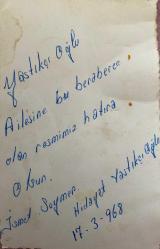 Yastıkçı Oğlu
Ailesine bu beraberce
olan resmimiz hatıra
Olsun.
İsmet Soymen Hidayet Yastıkçıoğlu
17-3-968